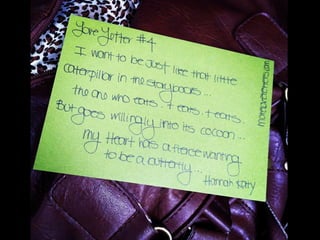 Love Letter #4
I want to be just like that little
caterpillar in the storybooks...
the one who eats. & eats. & eats.
But goes willingly into its cocoon...
my heart has a fierce wanting
to be a butterfly...
Hannah Katy